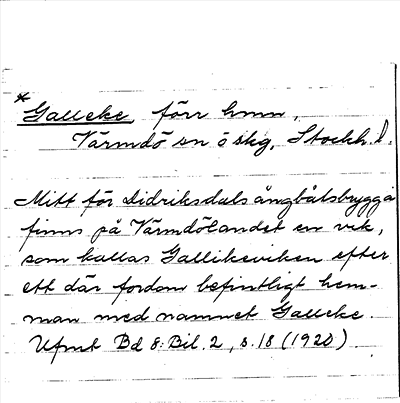 * Galleke, förr hmn,
Värmdö sn ö skg, Stockh. l.
Mitt för Didriksdals ångbåtsbrygga
finns på Värmdölandet en vik,
som kallas Gallikeviken efter
ett där fordom befintligt hem-
man med namnet Galleke.
Ufmt Bd 8: Bil. 2, s. 18 (1920)